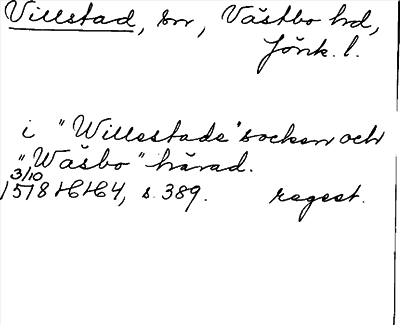 Villstad, sn, Västbo hd,
Jönk. l.
i "Willestads" socken och
"Wäsbo" härad.
3/10
1578 HH4, s. 389. regest.